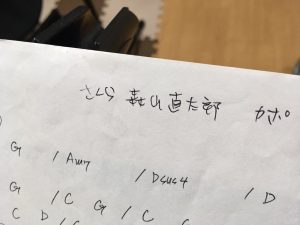 さくら 森山直太郎 カポ
G / Am7 / Dsus4 / D
G / C G / C C
C D